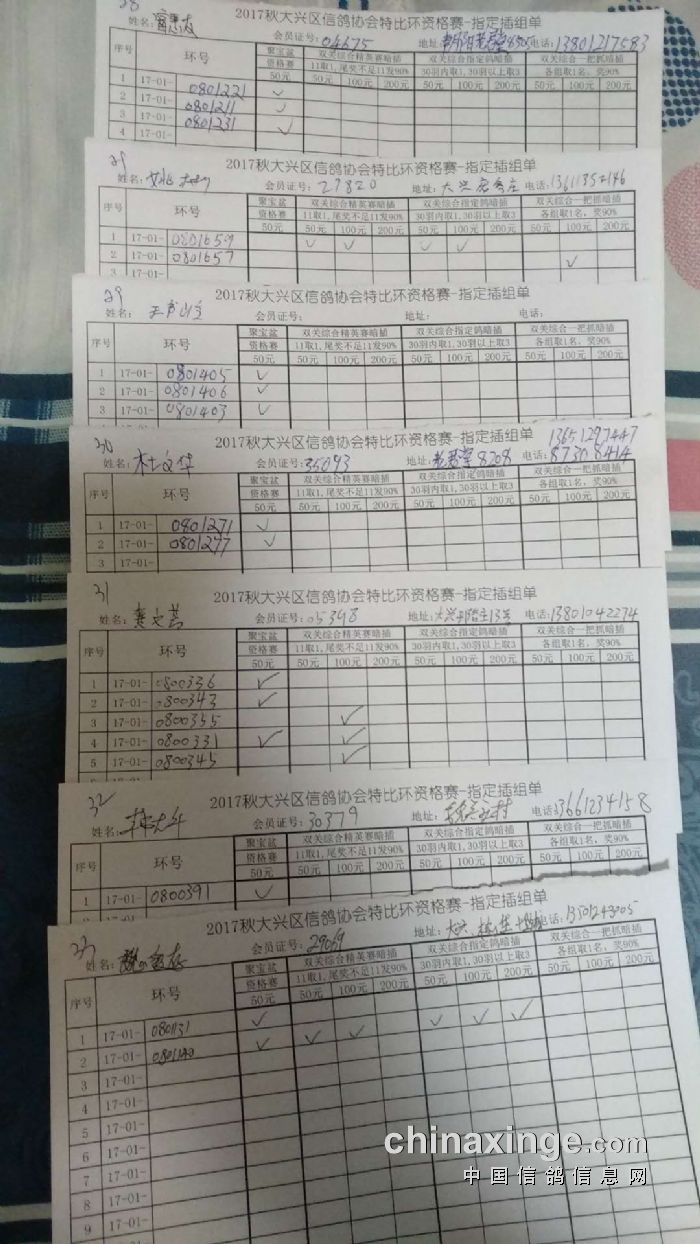 28
2017秋大兴区信鸽协会特比环资格赛-指定插组单
姓名: 会员证号: 04675 地址: 电话: 13801217583
序号 环号 聚宝盆 双关综合精英赛暗插 双关综合指定鸽暗插 双关综合一把抓暗插
资格赛 11取1,尾奖不足11发90% 30羽内取1,30羽以上取3 各组取1名,奖90%
50元 50元 100元 200元 50元 100元 200元 50元 100元 200元
1 17-01- 0801221 ✓
2 17-01- 0801211 ✓
3 17-01- 0801231 ✓
4 17-01-
2017秋大兴区信鸽协会特比环资格赛-指定插组单
姓名: 会员证号: 27820 地址: 大兴 电话:
序号 环号 聚宝盆 双关综合精英赛暗插 双关综合指定鸽暗插 双关综合一把抓暗插
资格赛 11取1,尾奖不足11发90% 30羽内取1,30羽以上取3 各组取1名,奖90%
50元 50元 100元 200元 50元 100元 200元 50元 100元 200元
1 17-01- 0801659 ✓ ✓ ✓ ✓
2 17-01- 0801657 ✓
3 17-01-
29
2017秋大兴区信鸽协会特比环资格赛-指定插组单
姓名: 会员证号: 地址: 电话:
序号 环号 聚宝盆 双关综合精英赛暗插 双关综合指定鸽暗插 双关综合一把抓暗插
资格赛 11取1,尾奖不足11发90% 30羽内取1,30羽以上取3 各组取1名,奖90%
50元 50元 100元 200元 50元 100元 200元 50元 100元 200元
1 17-01- 0801405 ✓
2 17-01- 0801406 ✓
3 17-01- 0801403 ✓
30
2017秋大兴区信鸽协会特比环资格赛-指定插组单 13651297447
姓名: 杜文华 会员证号: 35093 地址: 8208 电话: 87308414
序号 环号 聚宝盆 双关综合精英赛暗插 双关综合指定鸽暗插 双关综合一把抓暗插
资格赛 11取1,尾奖不足11发90% 30羽内取1,30羽以上取3 各组取1名,奖90%
50元 50元 100元 200元 50元 100元 200元 50元 100元 200元
1 17-01- 0801271 ✓
2 17-01- 0801277 ✓
3 17-01-
31
2017秋大兴区信鸽协会特比环资格赛-指定插组单
姓名: 会员证号: 05398 地址: 大兴 13号 电话: 13801042274
序号 环号 聚宝盆 双关综合精英赛暗插 双关综合指定鸽暗插 双关综合一把抓暗插
资格赛 11取1,尾奖不足11发90% 30羽内取1,30羽以上取3 各组取1名,奖90%
50元 50元 100元 200元 50元 100元 200元 50元 100元 200元
1 17-01- 0800336 ✓
2 17-01- 0800343 ✓
3 17-01- 0800355 ✓
4 17-01- 0800331 ✓ ✓
5 17-01- 0800345 ✓
32
2017秋大兴区信鸽协会特比环资格赛-指定插组单
姓名: 会员证号: 30379 地址: 电话: 13661234158
序号 环号 聚宝盆 双关综合精英赛暗插 双关综合指定鸽暗插 双关综合一把抓暗插
资格赛 11取1,尾奖不足11发90% 30羽内取1,30羽以上取3 各组取1名,奖90%
50元 50元 100元 200元 50元 100元 200元 50元 100元 200元
1 17-01- 0800391 ✓
2017秋大兴区信鸽协会特比环资格赛-指定插组单
姓名: 会员证号: 29069 地址: 大兴 电话:
序号 环号 聚宝盆 双关综合精英赛暗插 双关综合指定鸽暗插 双关综合一把抓暗插
资格赛 11取1,尾奖不足11发90% 30羽内取1,30羽以上取3 各组取1名,奖90%
50元 50元 100元 200元 50元 100元 200元 50元 100元 200元
1 17-01- 0801131 ✓ ✓ ✓ ✓
2 17-01- ✓ ✓ ✓
3 17-01-
4 17-01-
5 17-01-
6 17-01-
7 17-01-
8 17-01-
9 17-01-
chinaxinge.com
中国信鸽信息网